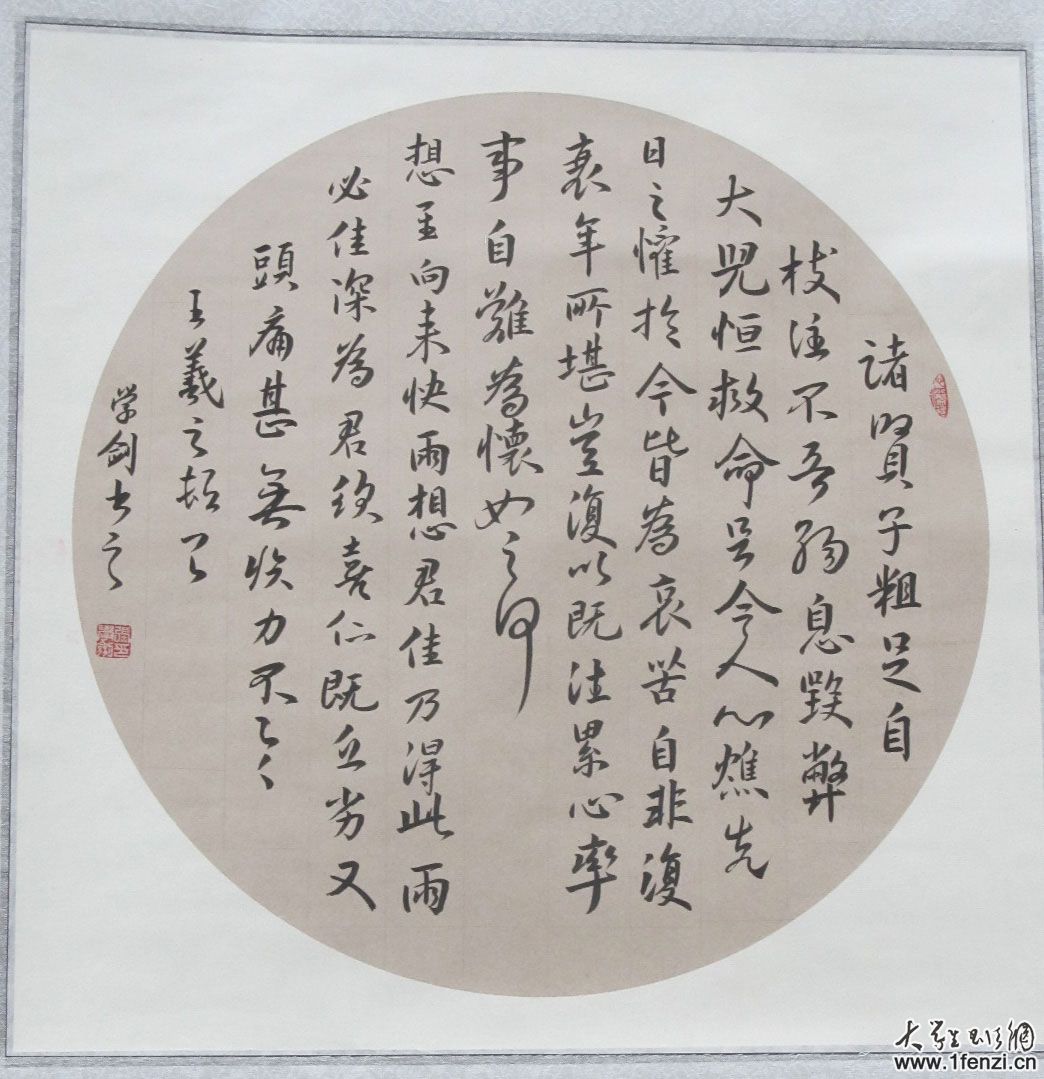 諸賢子粗足自
枝注不弱息毀弊
大兒恒救命足令人心燋先
日之懽於今皆為哀苦自非復
衰年所堪豈復以既往累心率
事自難為懷如之何
想至向来快雨想君佳乃得此雨
必佳深為君欣喜既乏劣又
頭痛甚無力不一一
王羲之頓首
学剑书之
大学生书法網
www.1fenzi.cn